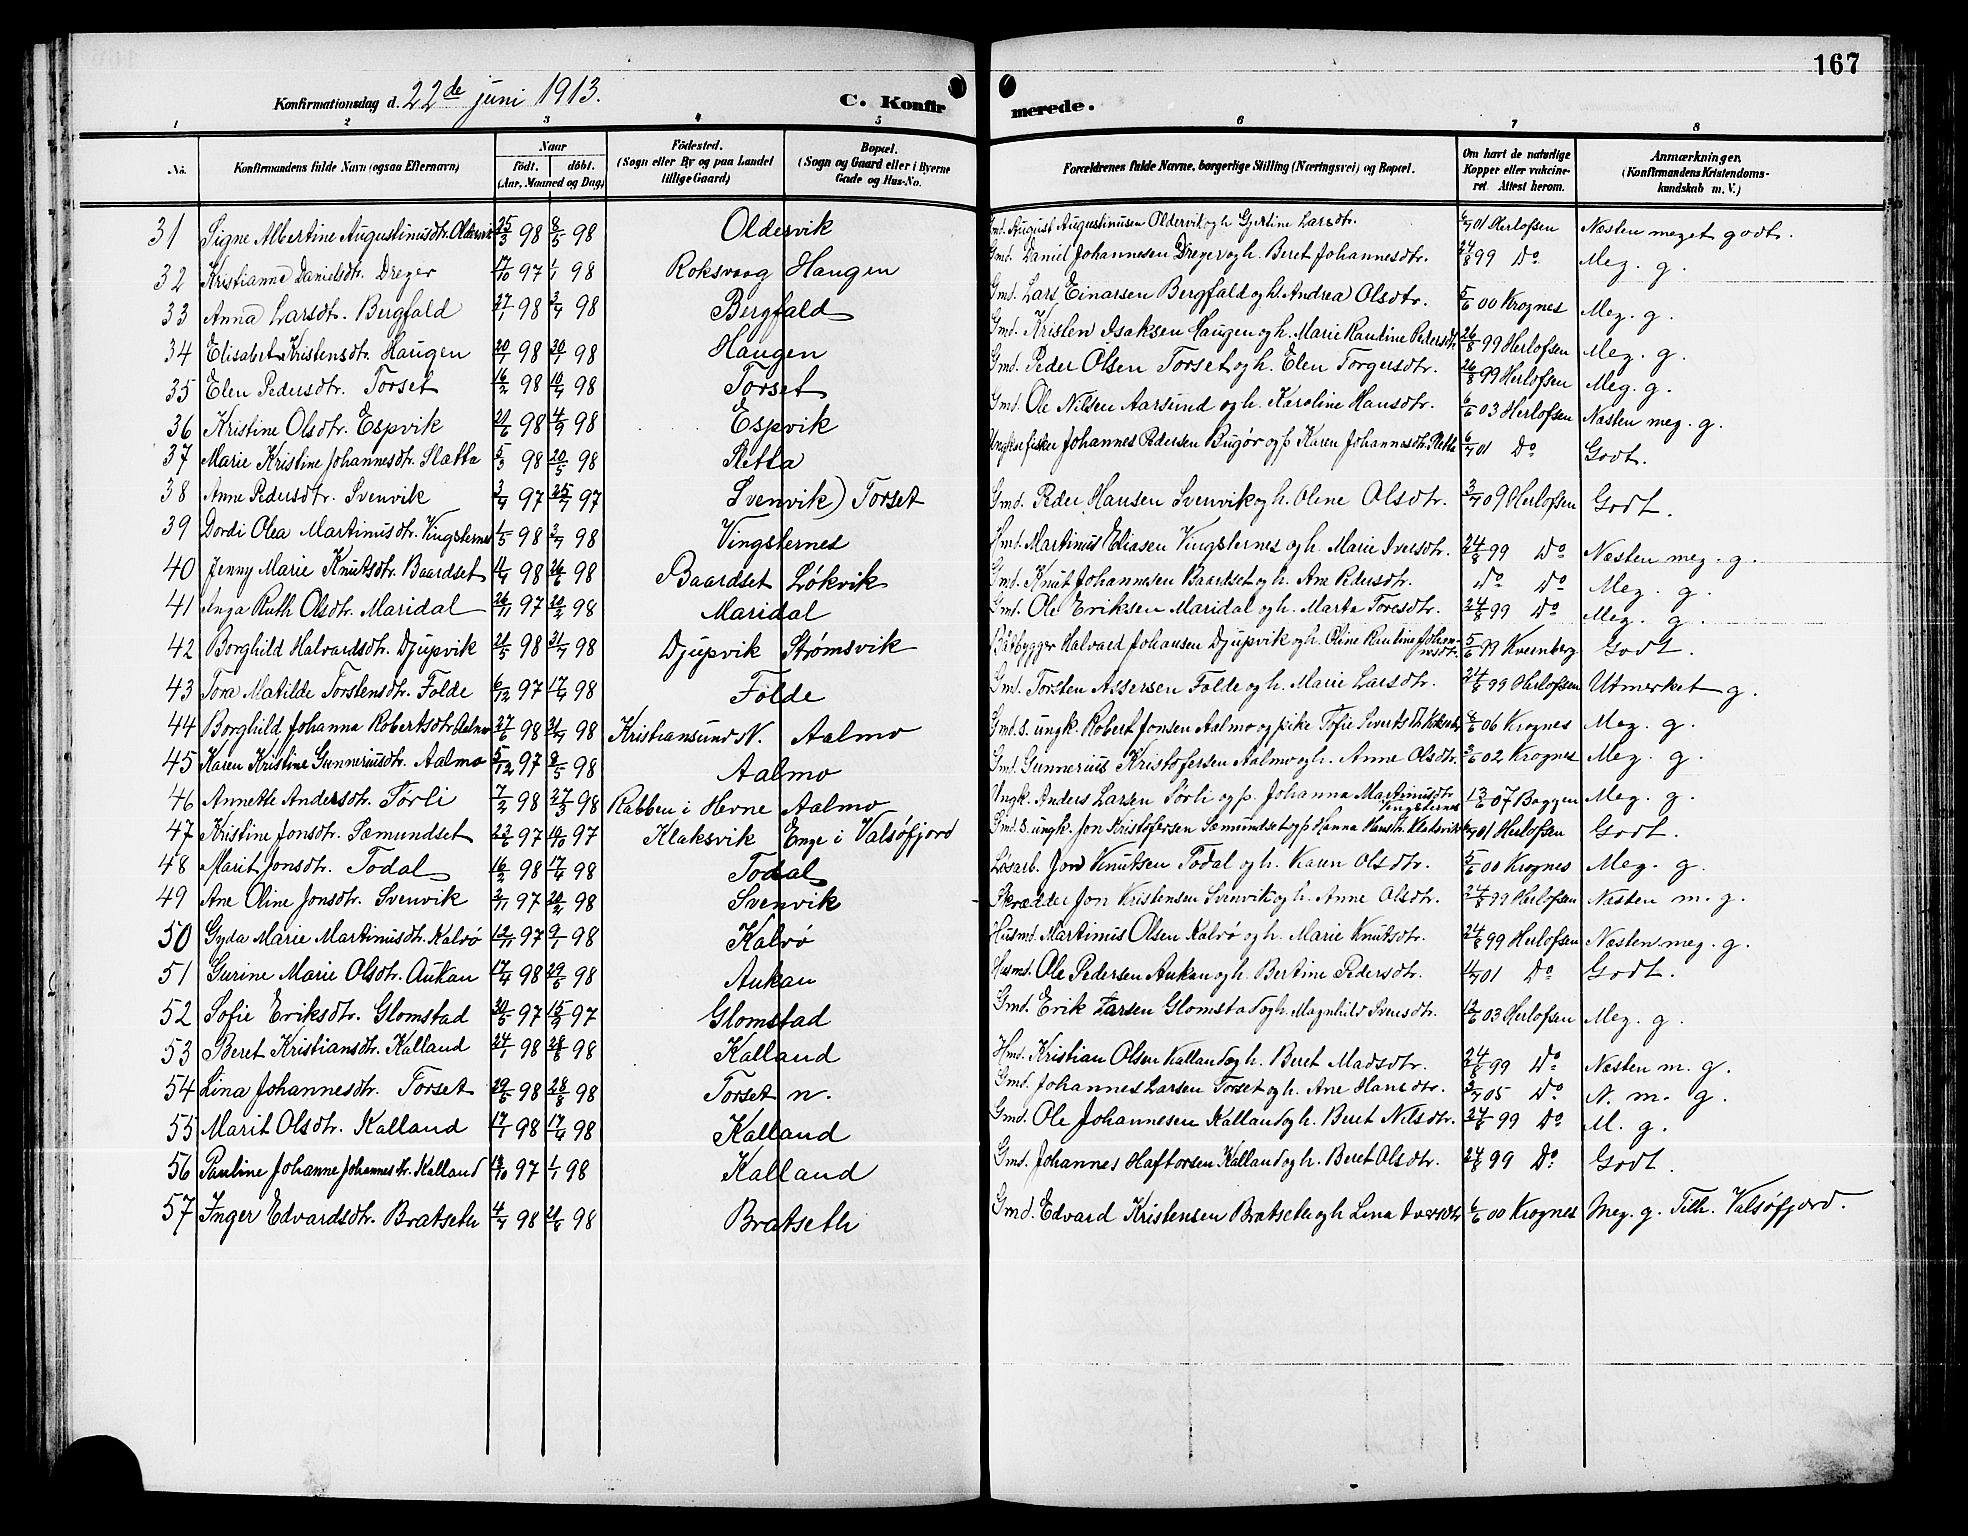 167
Konfirmationsdag d. 22de juni 1913. C. Konfirmerede.
1 2 3 4 5 6 7 8
No. Konfirmandens fulde Navn (ogsaa Efternavn) Naar födt. döbt. (Aar, Maaned og Dag) Födested. (Sogn eller By og paa Landet tillige Gaard) Bopæl. (Sogn og Gaard eller i Byerne Gade og Hus-No. Forældrenes fulde Navne, borgerlige Stilling (Næringsvei) og Bopæl. Om havt de naturlige Kopper eller vakcineret Attest herom. Anmærkninger, (Konfirmandens Kristendomskundskab m. V.)
31 Signe Albertine Augustinusdtr. Oldervik 25/3 98 8/5 98 Oldervik Gmd. August Augustinusen Oldervik og h. Gjertine Larsdtr. 6/7 01 Herlofsen Næsten meget godt.
32 Kristianne Danielsdtr. Dreger 17/10 97 1/1 98 Roksvaag Haugen Gmd. Daniel Johannesen Dreger og h. Beret Johannesdtr. 24/8 99 Do Meg. g.
33 Anna Larsdt. Bergfald 27/1 98 3/4 98 Bergfald Gmd. Lars Einarsen Bergfald og h. Andrea Olsdtr. 5/6 00 Krognes Meg. g.
34 Elisabet Kristensdtr. Haugen 20/1 98 20/1 98 Haugen Gmd. Kristen Isaksen Haugen og h. Marie Randine Pedersdtr. 26/8 99 Herlofsen Meg. g.
35 Elen Pedersdtr. Torset 16/2 98 10/4 98 Torset Gmd. Peder Olsen Torset og h. Elen Torgersdtr. 26/8 99 Herlofsen Meg. g.
36 Kristine Olsdtr. Espvik 20/6 98 4/9 98 Espvik Gmd. Ole Nilsen Aarsund og h. Karoline Hansdtr. 6/6 03 Herlofsen Næsten meg. g.
37 Marie Kristine Johannesdtr. Sletta 5/3 98 20/5 98 Sletta Johannes Pedersen Bugör og p. Karen Johannesdtr. Sletta 6/7 01 Do Godt.
38 Anne Pedersdtr. Svenvik 3/4 97 25/7 97 Svenvik) Torset Gmd. Peder Hansen Svenvik og h. Oline Olsdtr. 3/7 09 Herlofsen Godt.
39 Dordi Olea Martinusdtr. Vingsternes 1/5 98 3/7 98 Vingsternes Hmd. Martinus Eliasen Vingsternes og h. Marie Iversdtr. 24/8 99 Do Næsten meg. g.
40 Jenny Marie Knutsdtr. Baardset 4/4 98 26/6 98 Baardset Løkvik Gmd. Knut Johannesen Baardset og h. Ane Pedersdtr. Do Do Meg. g.
41 Inga Ruth Olsdtr. Maridal 26/11 97 20/2 98 Maridal Gmd. Ole Eriksen Maridal og h. Marta Toresdtr. 24/8 99 Do Meg. g.
42 Borghild Halvardsdtr. Djupvik 21/5 98 31/7 98 Djupvik Strømsvik Båtbygger Halvard Johansen Djupvik og h. Oline Pauline Johannesdtr. 5/6 99 Kvernberg Godt.
43 Tora Matilde Torstensdtr. Folde 6/12 97 17/4 98 Folde Gmd. Torsten Assersen Folde og h. Marie Larsdtr. 24/8 99 Herlofsen Utmerket g.
44 Borghild Johanna Robertsdtr. Aalmo 27/6 98 31/7 98 Kristiansund N. Aalmo Gmd.s. ungk. Robert Jonsen Aalmo og pike Sofie 8/6 06 Krognes Meg. g.
45 Karen Kristine Gunneriusdtr. Aalmo 5/12 97 8/5 98 Aalmo Gmd. Gunnerius Kristofersen Aalmo og h. Anne Olsdtr. 3/6 02 Krognes Meg. g.
46 Annette Andersdtr. Tørli 7/2 98 27/3 98 Rabben i Hevne Aalmo Ungk. Anders Larsen Tørli og p. Johanna Martinusdtr. Vingsternes 13/6 07 Baggen Meg. g.
47 Kristine Jonsdtr. Sæmundset 23/6 97 14/10 97 Klaksvik Enge i Valsøfjord Gmd.s. ungk. Jon Kristofersen Sæmundset og p. Hanna Hansdtr. Klaksvik 6/7 01 Herlofsen Godt.
48 Marit Jonsdtr. Todal 16/2 98 17/4 98 Todal Løsarb. Jon Knutsen Todal og h. Karen Olsdtr. 5/6 00 Krognes Meg. g.
49 Ane Oline Jonsdtr. Svenvik 3/11 97 20/2 98 Svenvik Skrædder Jon Kristensen Svenvik og h. Anne Olsdtr. 24/8 99 Herlofsen Næsten m. g.
50 Gyda Marie Martinusdtr. Kalvø 12/11 97 9/1 98 Kalvø Husmd. Martinus Olsen Kalvø og h. Marie Knutsdtr. 24/8 99 Herlofsen Næsten meg. g.
51 Gurine Marie Olsdtr. Aukan 17/4 98 29/5 98 Aukan Husmd. Ole Pedersen Aukan og h. Bertine Pedersdtr. 6/7 01 Do Godt.
52 Sofie Eriksdtr. Glomstad 30/5 97 15/8 97 Glomstad Gmd. Erik Larsen Glomstad og h. Magnhild Svensdtr. 12/6 03 Herlofsen Meg. g.
53 Beret Kristiansdtr. Kalland 24/1 98 28/8 98 Kalland Hmd. Kristian Olsen Kalland og h. Beret Madsdtr. 24/8 99 Do Næsten m. g.
54 Lina Johannesdtr. Torset 29/5 98 28/8 98 Torset n. Gmd. Johannes Larsen Torset og h. Ane Hansdtr. 3/7 05 Do N. m. g.
55 Marit Olsdtr. Kalland 17/1 98 17/4 98 Kalland Gmd. Ole Johannesen Kalland og h. Beret Nilsdtr. 24/8 99 Do M. g.
56 Pauline Johanne Johannesdtr. Kalland 13/10 97 1/1 98 Kalland Gmd. Johannes Haftorsen Kalland og h. Beret Olsdtr. 24/8 99 Do Godt.
57 Inger Edvardsdtr. Bratseth 4/4 98 21/6 98 Bratseth Gmd. Edvard Kristensen Bratseth og h. Lina Iversdtr. 6/6 00 Krognes Meg. g. Tilh. Valsøfjord.